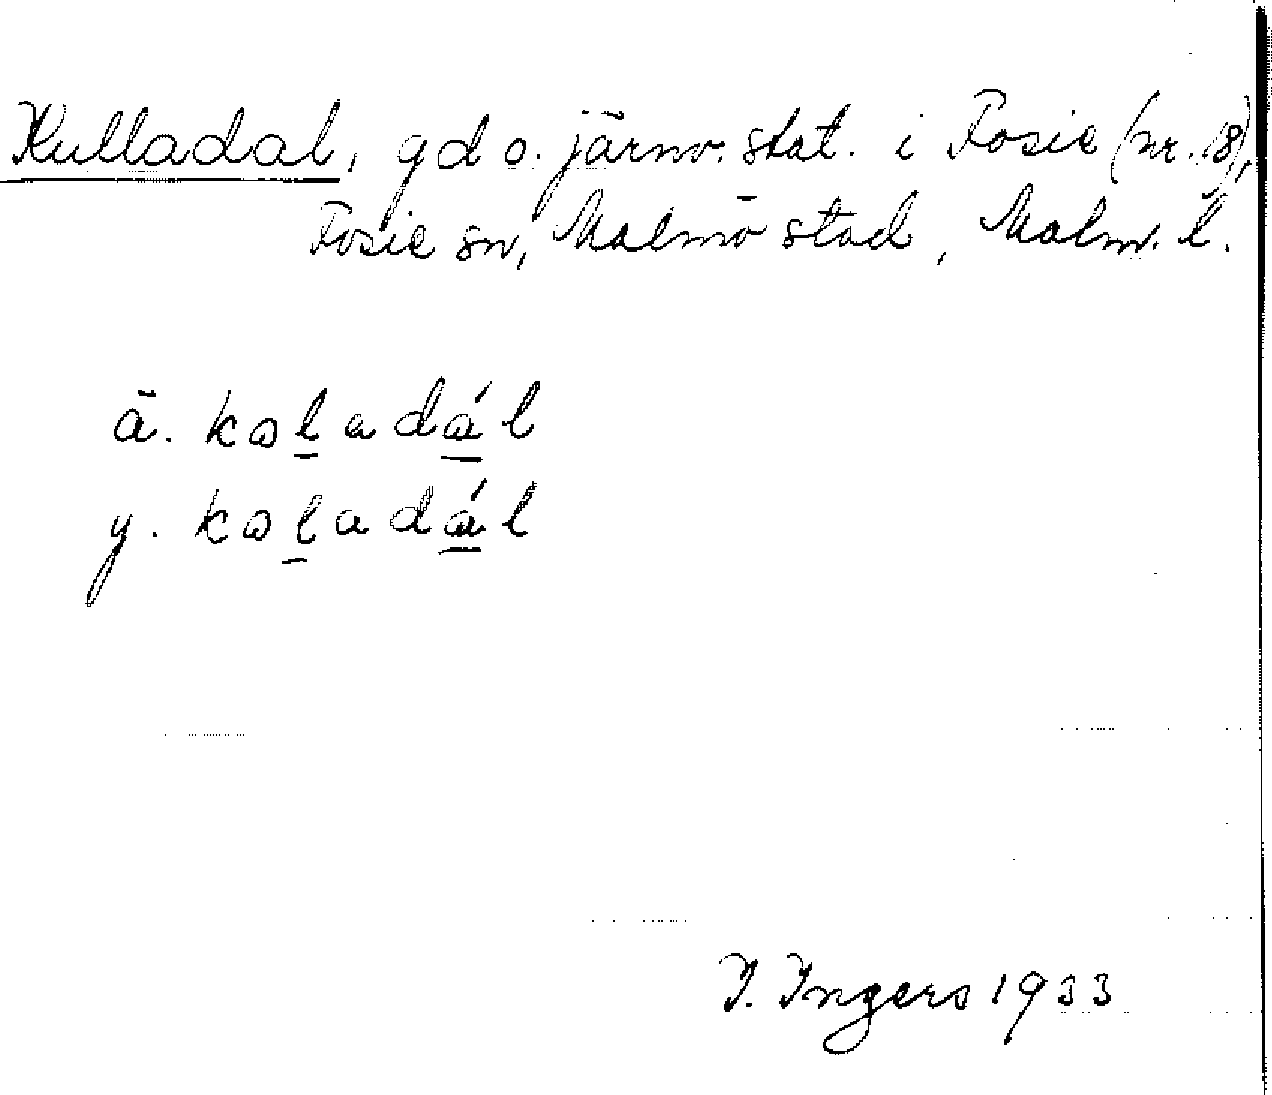 Kulladal, gd o. järnv. stat. i Fosie (nr. 18),
Fosie sn, Malmö stad, Malm. l.
ä. kɷl̲adá̲l
y. kɷl̲adá̲l
I. Ingers 1933